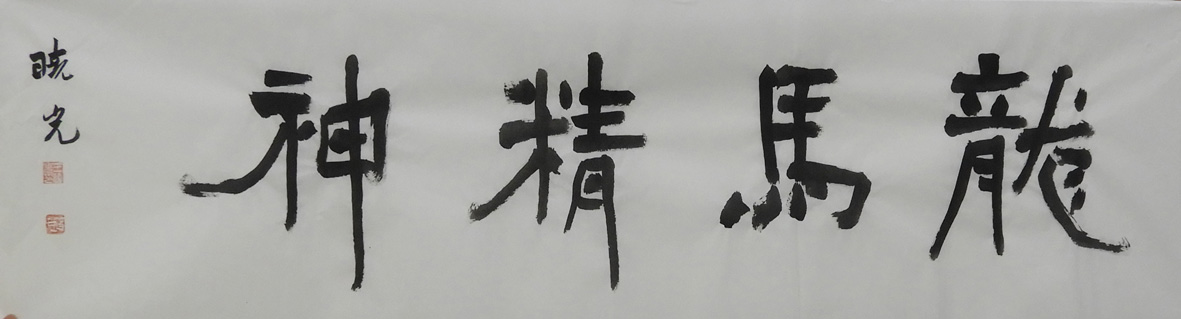 龍馬精神
晓光